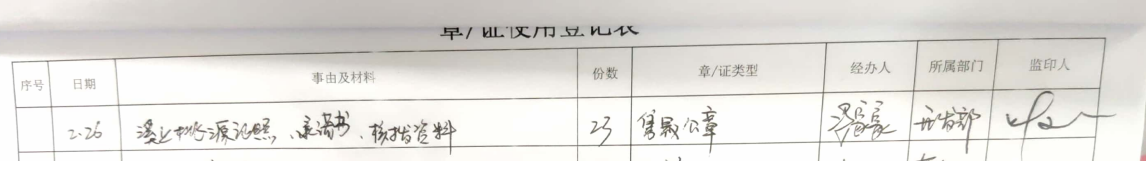 章/证使用登记表
序号 日期 事由及材料 份数 章/证类型 经办人 所属部门 监印人
2.26 溪上桃源证照、承诺书、核准资料 23 公章 开发部